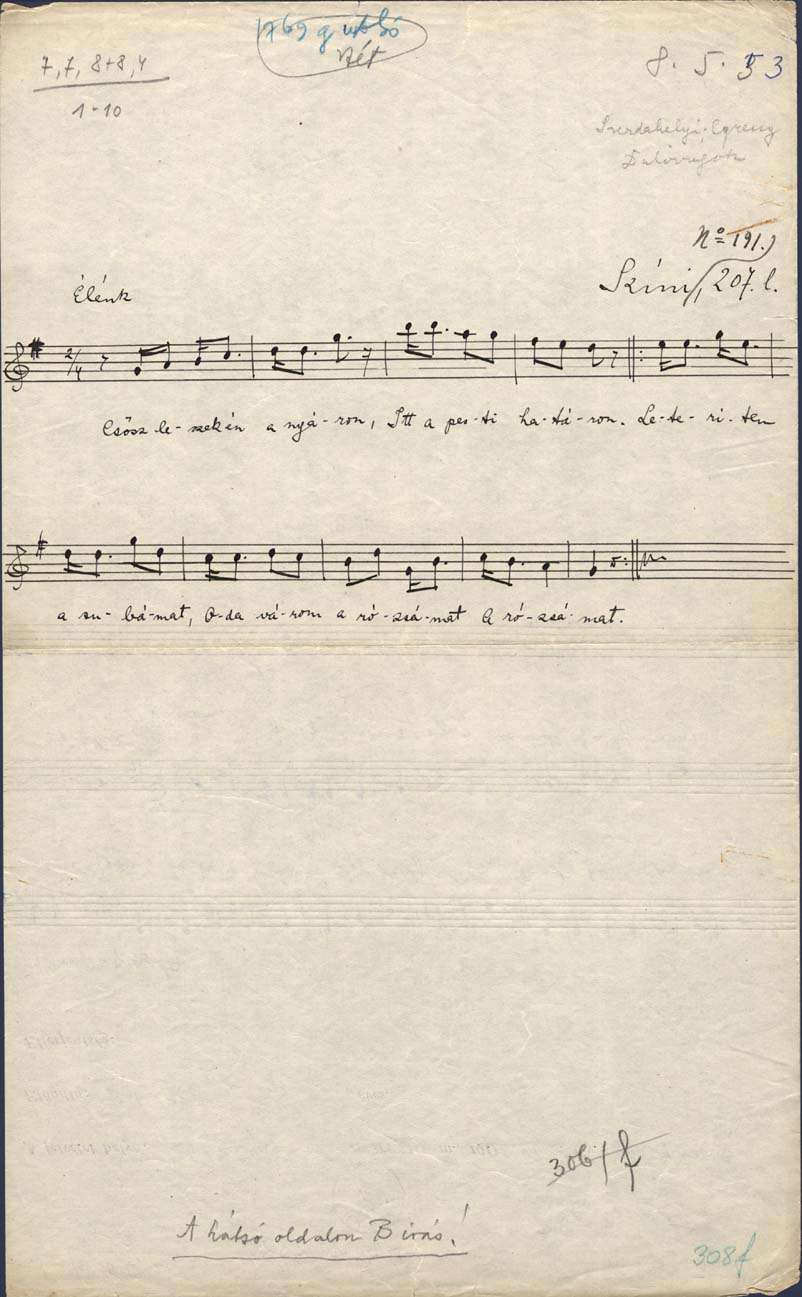 1769 g utolsó
Hét
7, 7, 8+8, 4
1-10
8. 5. 5 3
Szerdahelyi, Egressy
Nº 191.)
Élénk
Színi, 207. l.
2/4
Csősz le-szek én a nyá-ron, Itt a pes-ti ha-tá-ron. Le-te-ri-tem
a su-bá-mat, O-da vá-rom a ró-zsá-mat A ró-zsá-mat.
306/f
A hátsó oldalon B írás!
308f